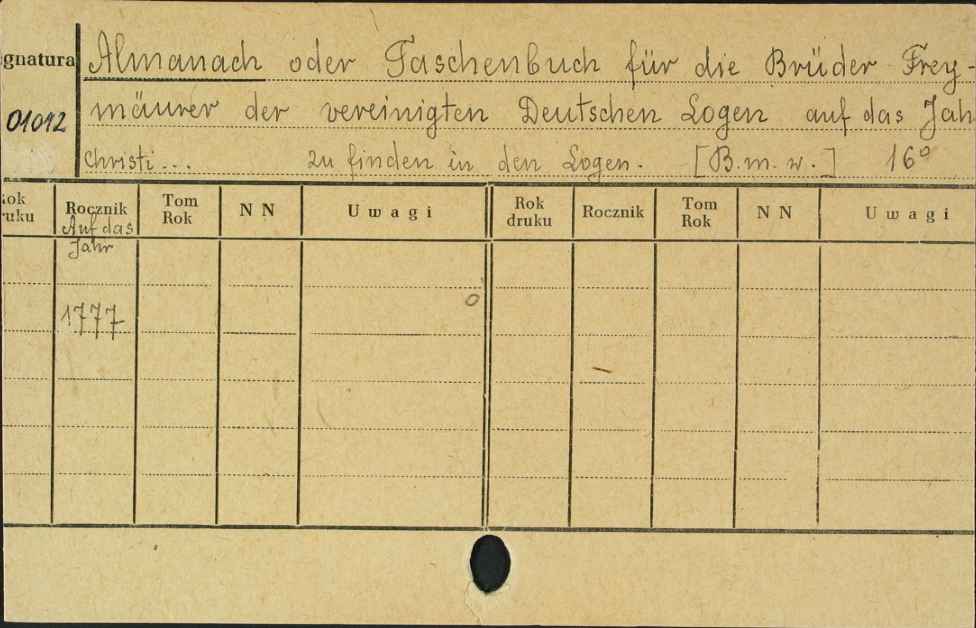 gnatura Almanach oder Taschenbuch für die Brüder Frey-
01012 mäurer der vereinigten Deutschen Logen auf das Jah
Christi... zu finden in den Logen. [B.m.w.] 16°
Rok druku Rocznik Tom Rok N N Uwagi Rok druku Rocznik Tom Rok N N Uwagi
Auf das
Jahr
1777